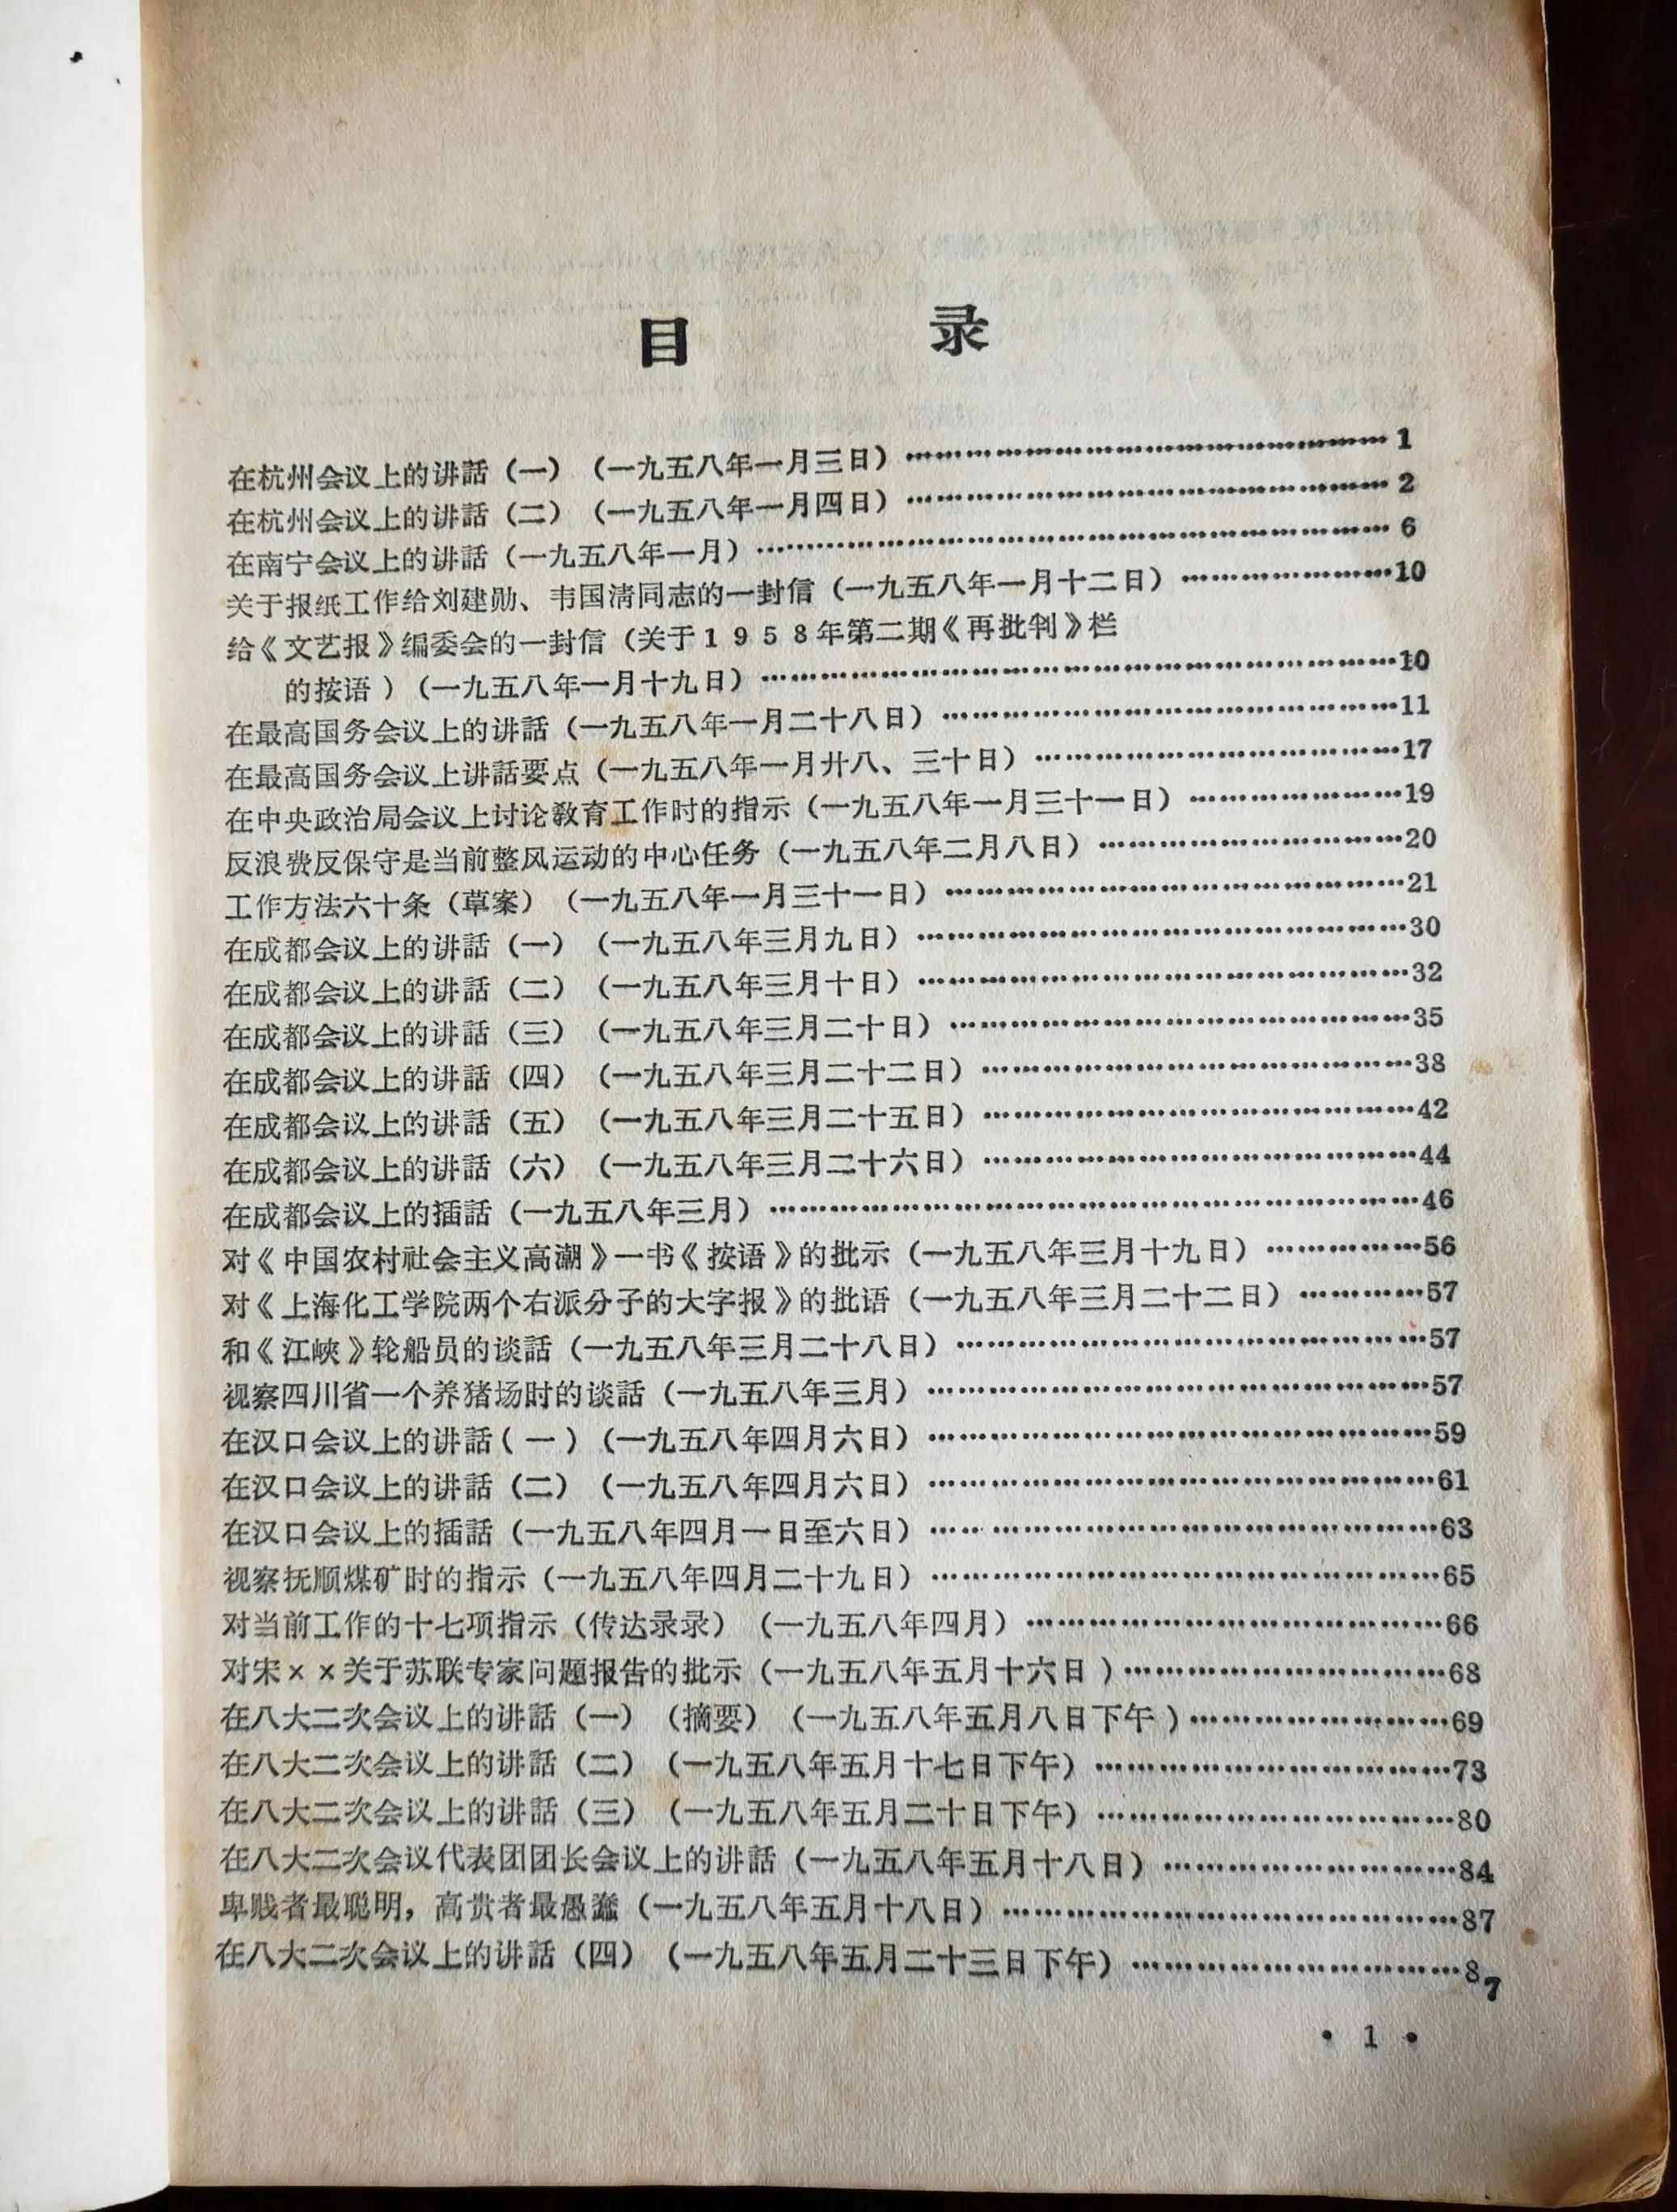 目　录
在杭州会议上的讲話（一）（一九五八年一月三日）…………………………………………1
在杭州会议上的讲話（二）（一九五八年一月四日）…………………………………………2
在南宁会议上的讲話（一九五八年一月）…………………………………………………6
关于报纸工作给刘建勋、韦国清同志的一封信（一九五八年一月十二日）…………………10
给《文艺报》编委会的一封信（关于1958年第二期《再批判》栏
的按语）（一九五八年一月十九日）…………………………………………………………10
在最高国务会议上的讲話（一九五八年一月二十八日）………………………………………11
在最高国务会议上讲話要点（一九五八年一月廾八、三十日）………………………………17
在中央政治局会议上讨论教育工作时的指示（一九五八年一月三十一日）…………………19
反浪费反保守是当前整风运动的中心任务（一九五八年二月八日）…………………………20
工作方法六十条（草案）（一九五八年一月三十一日）………………………………………21
在成都会议上的讲話（一）（一九五八年三月九日）…………………………………………30
在成都会议上的讲話（二）（一九五八年三月十日）…………………………………………32
在成都会议上的讲話（三）（一九五八年三月二十日）………………………………………35
在成都会议上的讲話（四）（一九五八年三月二十二日）……………………………………38
在成都会议上的讲話（五）（一九五八年三月二十五日）……………………………………42
在成都会议上的讲話（六）（一九五八年三月二十六日）……………………………………44
在成都会议上的插話（一九五八年三月）………………………………………………………46
对《中国农村社会主义高潮》一书《按语》的批示（一九五八年三月十九日）……………56
对《上海化工学院两个右派分子的大字报》的批语（一九五八年三月二十二日）…………57
和《江峽》轮船员的谈話（一九五八年三月二十八日）………………………………………57
视察四川省一个养猪场时的谈話（一九五八年三月）…………………………………………57
在汉口会议上的讲話（一）（一九五八年四月六日）…………………………………………59
在汉口会议上的讲話（二）（一九五八年四月六日）…………………………………………61
在汉口会议上的插話（一九五八年四月一日至六日）…………………………………………63
视察抚顺煤矿时的指示（一九五八年四月二十九日）…………………………………………65
对当前工作的十七项指示（传达录录）（一九五八年四月）…………………………………66
对宋××关于苏联专家问题报告的批示（一九五八年五月十六日）…………………………68
在八大二次会议上的讲話（一）（摘要）（一九五八年五月八日下午）……………………69
在八大二次会议上的讲話（二）（一九五八年五月十七日下午）……………………………73
在八大二次会议上的讲話（三）（一九五八年五月二十日下午）……………………………80
在八大二次会议代表团团长会议上的讲話（一九五八年五月十八日）………………………84
卑贱者最聪明，高贵者最愚蠢（一九五八年五月十八日）……………………………………87
在八大二次会议上的讲話（四）（一九五八年五月二十三日下午）…………………………87
• 1 •